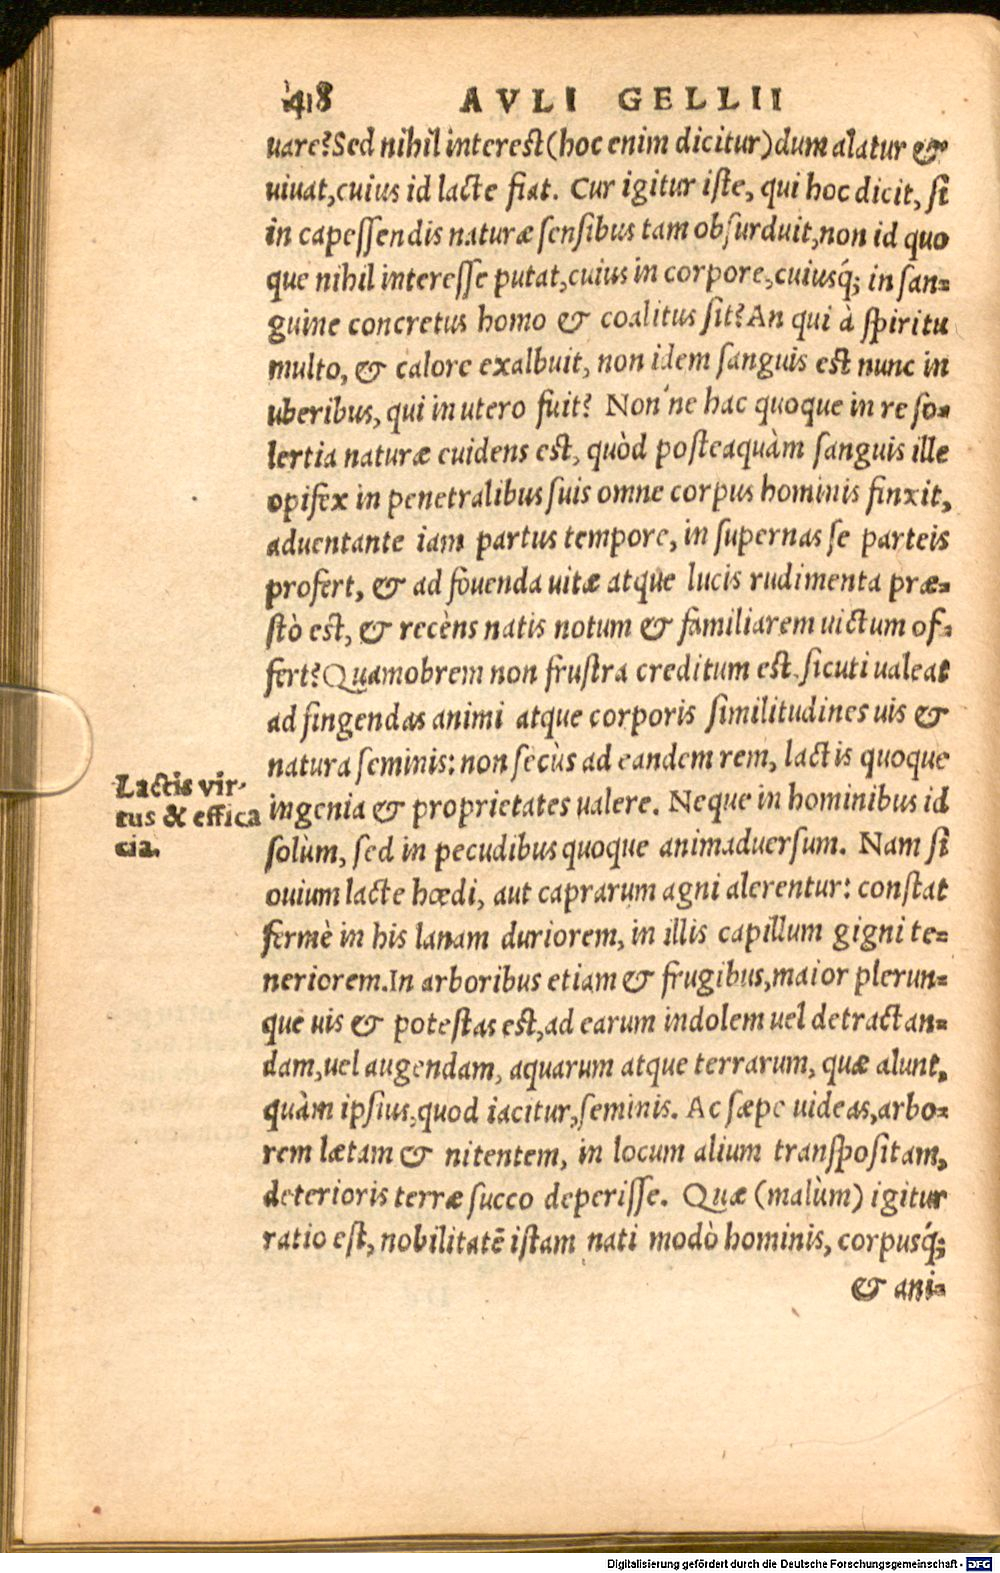 418 AVLI GELLII
uare? Sed nihil interest (hoc enim dicitur) dum alatur &
uiuat, cuius id lacte fiat. Cur igitur iste, qui hoc dicit, si
in capessendis naturæ sensibus tam obsurduit, non id quo
que nihil interesse putat, cuius in corpore, cuiusq́; in san-
guine concretus homo & coalitus sit? An qui à spiritu
multo, & calore exalbuit, non idem sanguis est nunc in
uberibus, qui in utero fuit? Non ́ne hac quoque in re so-
lertia naturæ euidens est, quòd posteaquàm sanguis ille
opifex in penetralibus suis omne corpus hominis finxit,
aduentante iam partus tempore, in supernas se parteis
profert, & ad fouenda uitæ atque lucis rudimenta præ-
stò est, & recèns natis notum & familiarem uictum of-
fert? Quamobrem non frustra creditum est, sicuti ualeat
ad fingendas animi atque corporis similitudines uis &
natura seminis: non secùs ad eandem rem, lactis quoque
ingenia & proprietates ualere. Neque in hominibus id
solùm, sed in pecudibus quoque animaduersum. Nam si
ouium lacte hœdi, aut caprarum agni alerentur: constat
fermè in his lanam duriorem, in illis capillum gigni te-
neriorem. In arboribus etiam & frugibus, maior plerun-
que uis & potestas est, ad earum indolem uel detractan-
dam, uel augendam, aquarum atque terrarum, quæ alunt,
quàm ipsius, quod iacitur, seminis. Ac sæpe uideas, arbo-
rem lætam & nitentem, in locum alium transpositam,
deterioris terræ succo deperisse. Quæ (malùm) igitur
ratio est, nobilitatē istam nati modò hominis, corpusq́;
& ani-
Lactis vir-
tus & effica
cia.
Digitalisierung gefördert durch die Deutsche Forschungsgemeinschaft - DFG